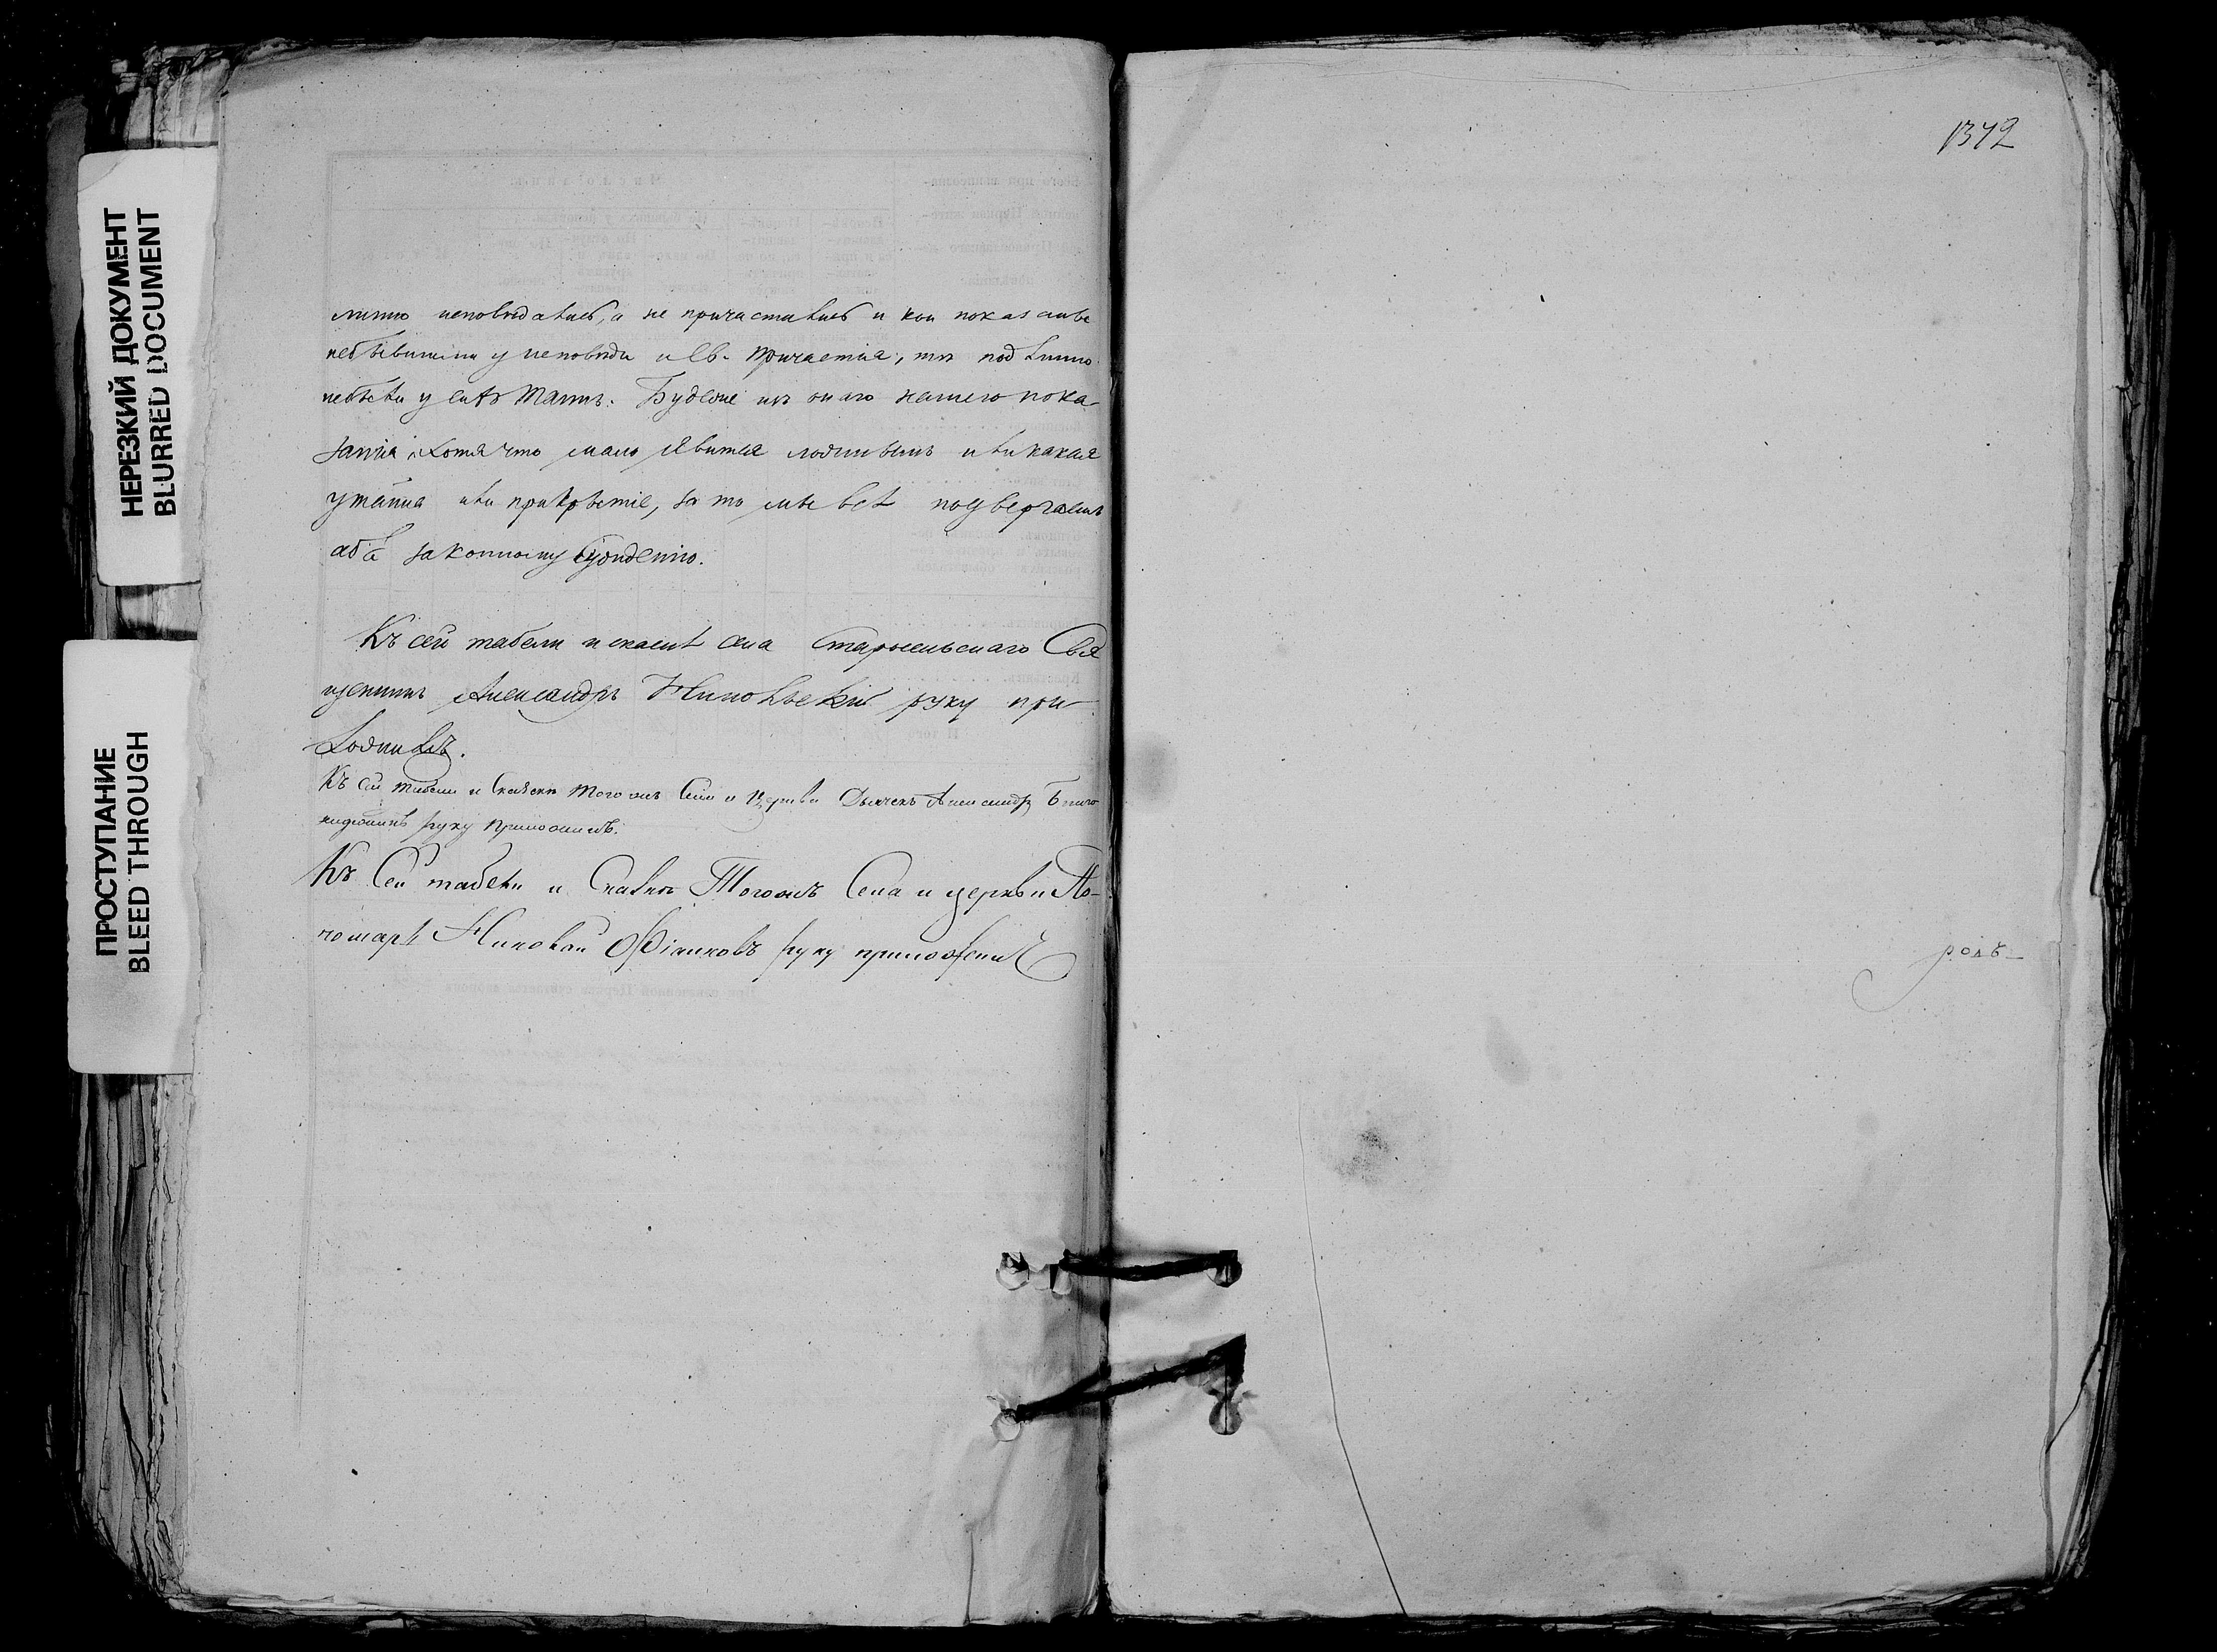 НЕРЕЗКИЙ ДОКУМЕНТ
BLURRED DOCUMENT
ПРОСТУПАНИЕ
BLEED THROUGH
исповѣдались, а не причастились и кои показаны
небывшими у исповѣди и Св. Причастія, тѣ подлинно
небыли у сихъ Таинъ. Буде же изъ онаго нашего пока-
занія хотя что мало явится ложнымъ или какая
утайка или прикрытіе, за то мы всѣ подвергаемъ
себя законному сужденію.
Къ сей табели и сказкѣ села Старосельскаго Свя
щенникъ Александръ руку при
ложилъ.
Къ сей табели и Сказки Тогожъ Села и Церкви Дьячекъ Александръ
руку приложилъ.
Къ Сей табели и Сказкѣ Тогожъ Села и церкви По-
номарь Николай руку приложилъ
1372